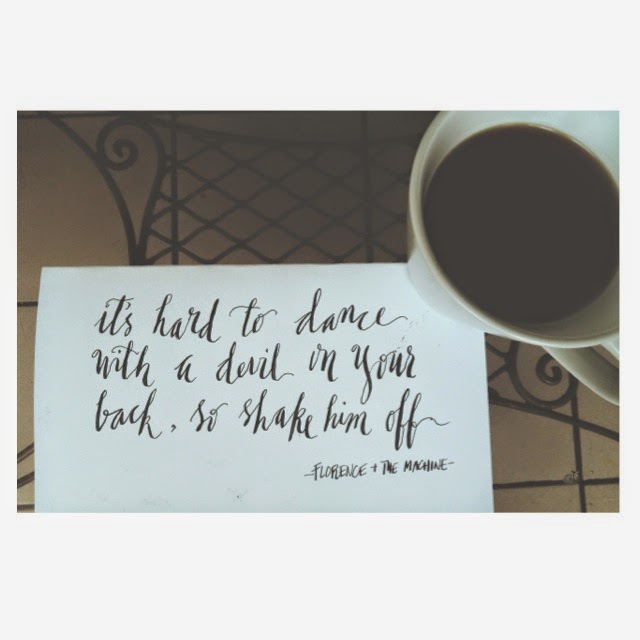 it's hard to dance
with a devil on your
back, so shake him off
-FLORENCE + THE MACHINE-